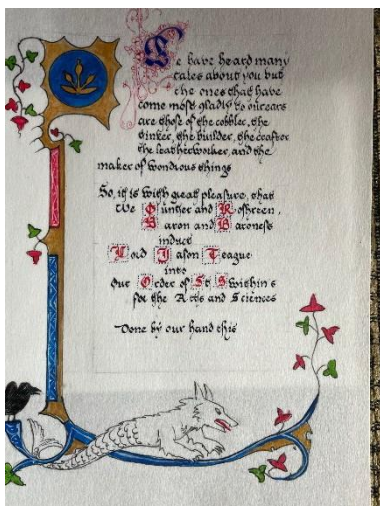 We have heard many
tales about you but
the ones that have
come most gladly to our ears
are those of the cobbler, the
tinker, the builder, the crafter
the leatherworker, and the
maker of wondrous things
So, it is with great pleasure, that
We Günther and Roshreen,
Baron and Baroness
induct
Lord Jason Teague
into
Our Order of St Swithin's
for the Arts and Sciences
Done by our hand this